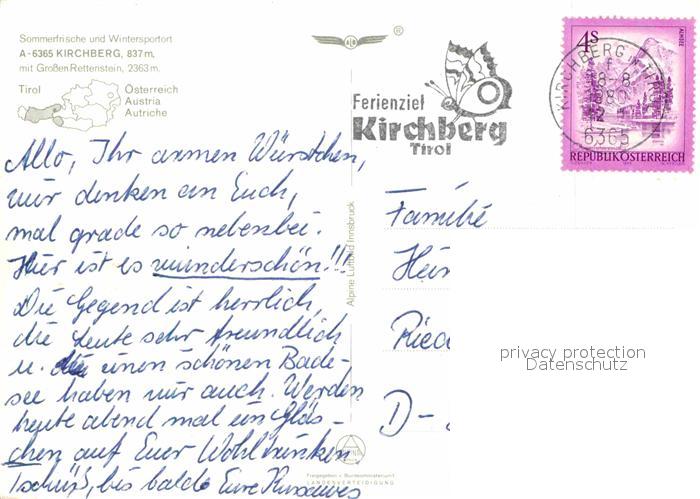 Sommerfrische und Wintersportort
A-6365 KIRCHBERG, 837 m,
mit Großem Rettenstein, 2363 m.
Tirol
Österreich
Austria
Autriche
®
Ferienziel
Kirchberg
Tirol
4S
ALMSEE
KIRCHBERG IN TIROL
8-8
80
6365
REPUBLIK ÖSTERREICH
Allo, Ihr armen Würstchen,
wir denken an Euch,
mal grade so nebenbei.
Hier ist es wunderschön!!!
Die Gegend ist herrlich,
die Leute sehr freundlich
u. einen schönen Bade-
see haben wir auch. Werden
heute abend mal ein Gläs-
chen auf Euer Wohl trinken,
Tschüß, bis bald Eure
Alpine Luftbild Innsbruck
Familie
Hein
Ried
D-
privacy protection
Datenschutz
Freigegeben v. Bundesministerium f.
LANDESVERTEIDIGUNG